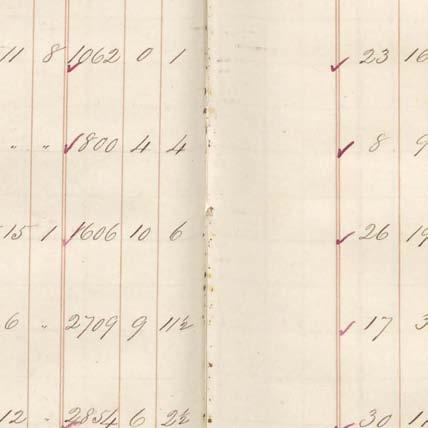 11 8 1062 0 1 ✓ 23 16
" " ✓ 1800 4 4 ✓ 8 9
15 1 ✓ 1606 10 6 ✓ 26 19
6 " 2709 9 11½ ✓ 17 3
12 - 2854 6 2½ ✓ 30